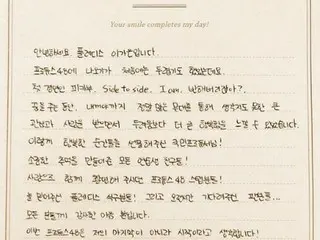 Your smile completes my day!
안녕하세요 플레디스 이가은입니다.
프로듀스48에 나오기가 처음에는 두렵기도 했었는데요.
첫 경연인 피카부, Side to side, I am, 반해버리잖아?
꿈을 꾸는 동안, 까지 정말 많은 무대를 통해 생각지도 못한 큰
관심과 사랑을 받으면서 두려움보다 더 큰 행복함을 느낄 수 있었습니다.
이렇게 행복한 순간들을 선물해주신 국민프로듀서님!
소중한 추억을 만들어준 모든 연습생 친구들!
사랑으로 함께 해주신 프로듀스48 스텝분들!
늘 믿어주신 플레디스 식구분들! 그리고 오랫동안 기다려주신 팬분들...
모든 분들께 감사한 마음 뿐입니다.
이번 프로듀스48은 저의 마지막이 아니라 시작이라고 생각합니다!